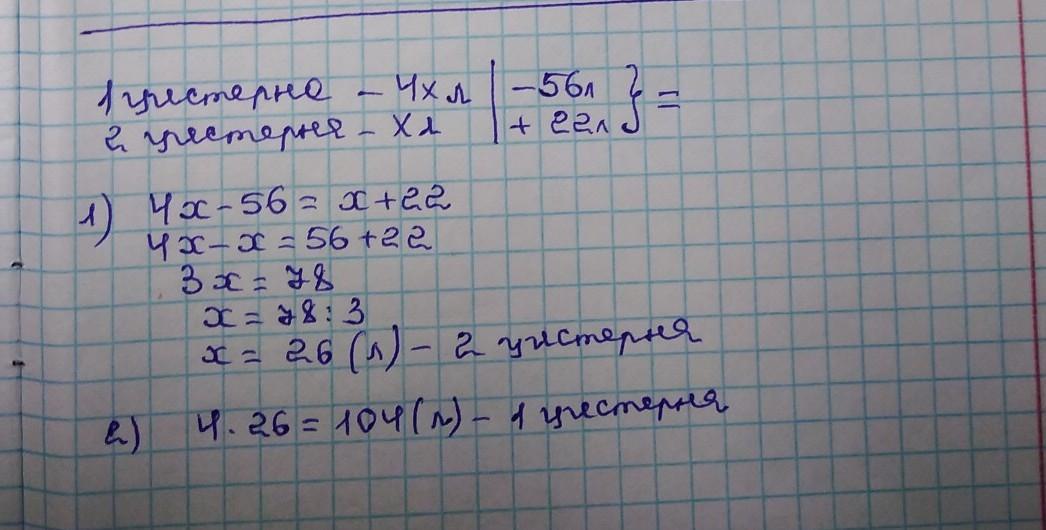 1 цистерна - 4х л | - 56л } =
2 цистерня - х л | + 22л
1) 4x - 56 = x + 22
4x - x = 56 + 22
3x = 78
x = 78 : 3
x = 26 (л) - 2 цистерня
2) 4 · 26 = 104 (л) - 1 цистерня